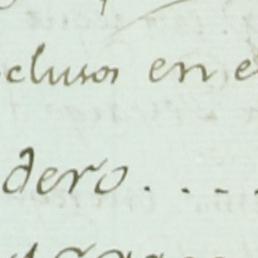 clusos en e
dero. . . .